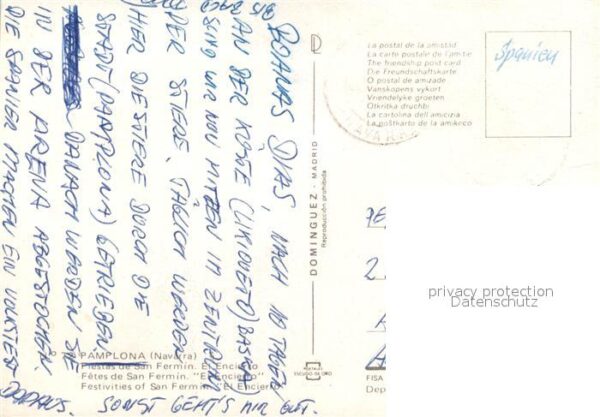 BUENAS DIAS, NACH 10 TAGEN
AN DER KÜSTE (LIKOUETO) BASKEN)
SIND WIR NUN MITTEN IM ZENTRUM
DER STIERE. TÄGLICH WERDEN
HIER DIE STIERE DURCH DIE
STADT (PAMPLONA) GETRIEBEN
DANACH WERDEN SIE
IN DER ARENA ABGESTOCHEN.
DIE SPANIER MACHEN EIN VOLKSFEST
DARAUS. SONST GEHT'S MIR GUT.
BIS
PAMPLONA (Navarra)
Fiestas de San Fermín. El Encierro
Fêtes de San Fermín. "El Encierro"
Festivities of San Fermín. "El Encierro"
DOMINGUEZ - MADRID
Reproducción prohibida
POSTALES
ESCUDO DE ORO
La postal de la amistad
La carte postale de l'amitié
The friendship post card
Die Freundschaftskarte
O postal de amizade
Vanskopens vykort
Vriendelyke groeten
Otkritka druchbi
La cartolina dell'amicizia
La poŝtkarto de la amikeco
Spanien
privacy protection
Datenschutz
FISA
Dep